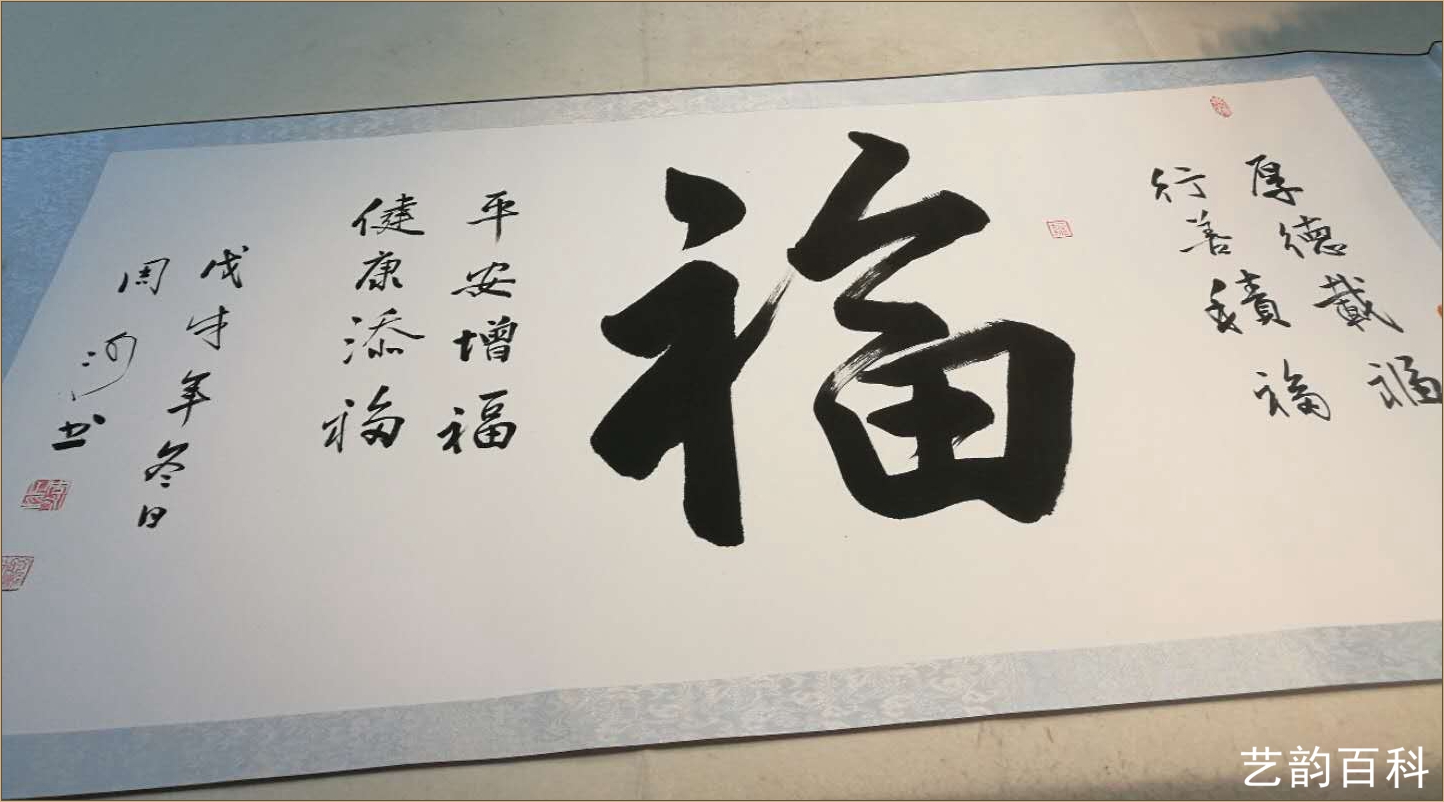 厚德载福
行善积福
福
平安增福
健康添福
戊戌年冬日
周河书
艺韵百科